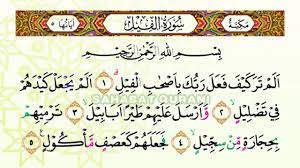 مكية سورة الفيل آياتها ٥
بِسْمِ اللهِ الرَّحْمٰنِ الرَّحِيْمِ
اَلَمْ تَرَ كَيْفَ فَعَلَ رَبُّكَ بِاَصْحٰبِ الْفِيْلِ ۝١ اَلَمْ يَجْعَلْ كَيْدَهُمْ
SAHABAT QURANI
فِيْ تَضْلِيْلٍ ۝٢ وَاَرْسَلَ عَلَيْهِمْ طَيْرًا اَبَابِيْلَ ۝٣ تَرْمِيْهِمْ
بِحِجَارَةٍ مِّنْ سِجِّيْلٍ ۝٤ فَجَعَلَهُمْ كَعَصْفٍ مَّأْكُوْلٍ ۝٥